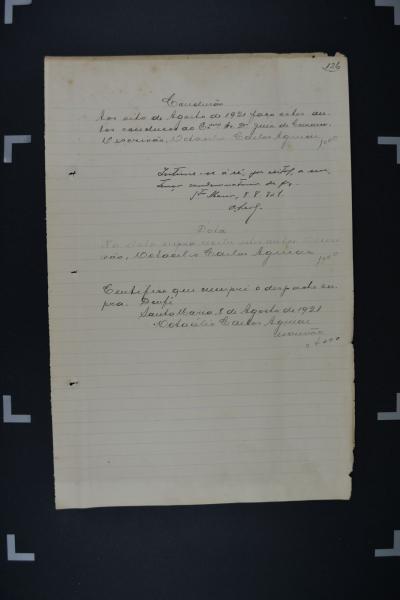 126
Conclusão
Aos oito de Agosto de 1921 faço estes au-
tos conclusos ao Dr. Juiz de Comarca.
O escrivão, Octacilio Carlos Aguiar
1000
Intime-se a ré, por edital, a sen-
tença condemnatoria de fls.
Sta Maria, 8.8.921.
Data
Na data supra recebi estes autos. O escri-
vão, Octacilio Carlos Aguiar
1000
Certifico que cumpri o despacho su-
pra. Dou fé.
Santa Maria, 8 de Agosto de 1921
Octacilio Carlos Aguiar
escrivão